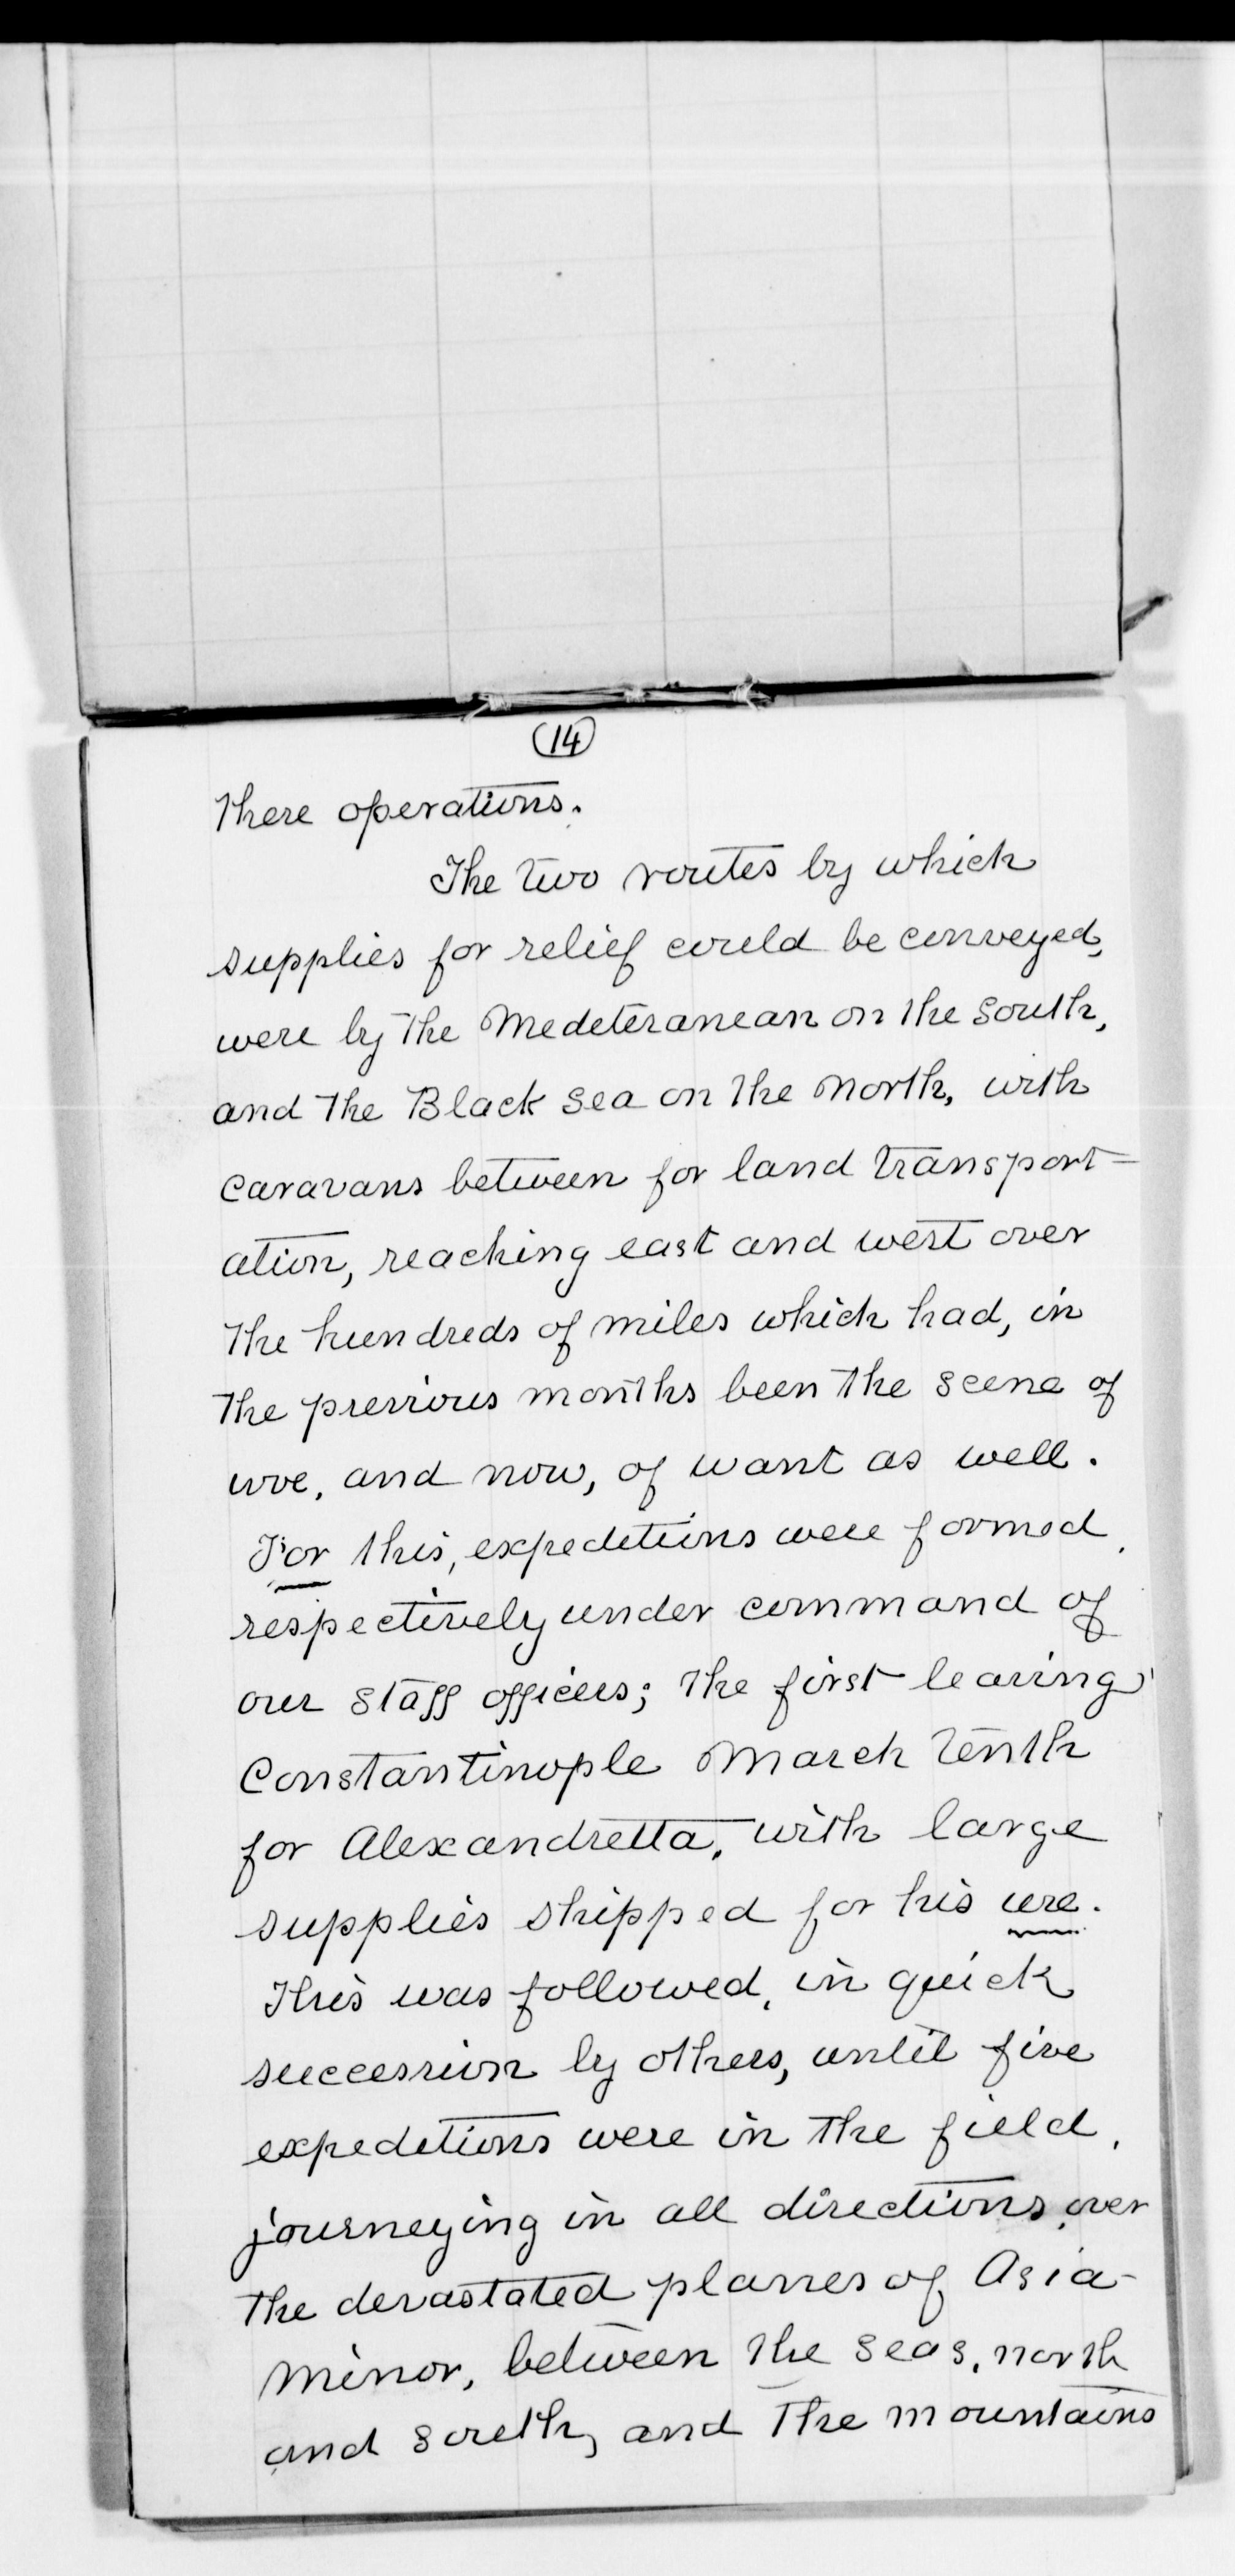 (14)
there operations.
The two routes by which
supplies for relief could be conveyed,
were by the Medeteranean on the south,
and the Black sea on the north, with
caravans between for land transport-
ation, reaching east and west over
the hundreds of miles which had, in
the previous months been the scene of
woe, and now, of want as well.
For this, expeditions were formed,
respectively under command of
our staff officers; the first leaving
Constantinople March tenth
for Alexandretta, with large
supplies shipped for his use.
This was followed, in quick
succession by others, until five
expeditions were in the field,
journeying in all directions, over
the devastated planes of Asia-
minor, between the seas, north
and south, and the mountains